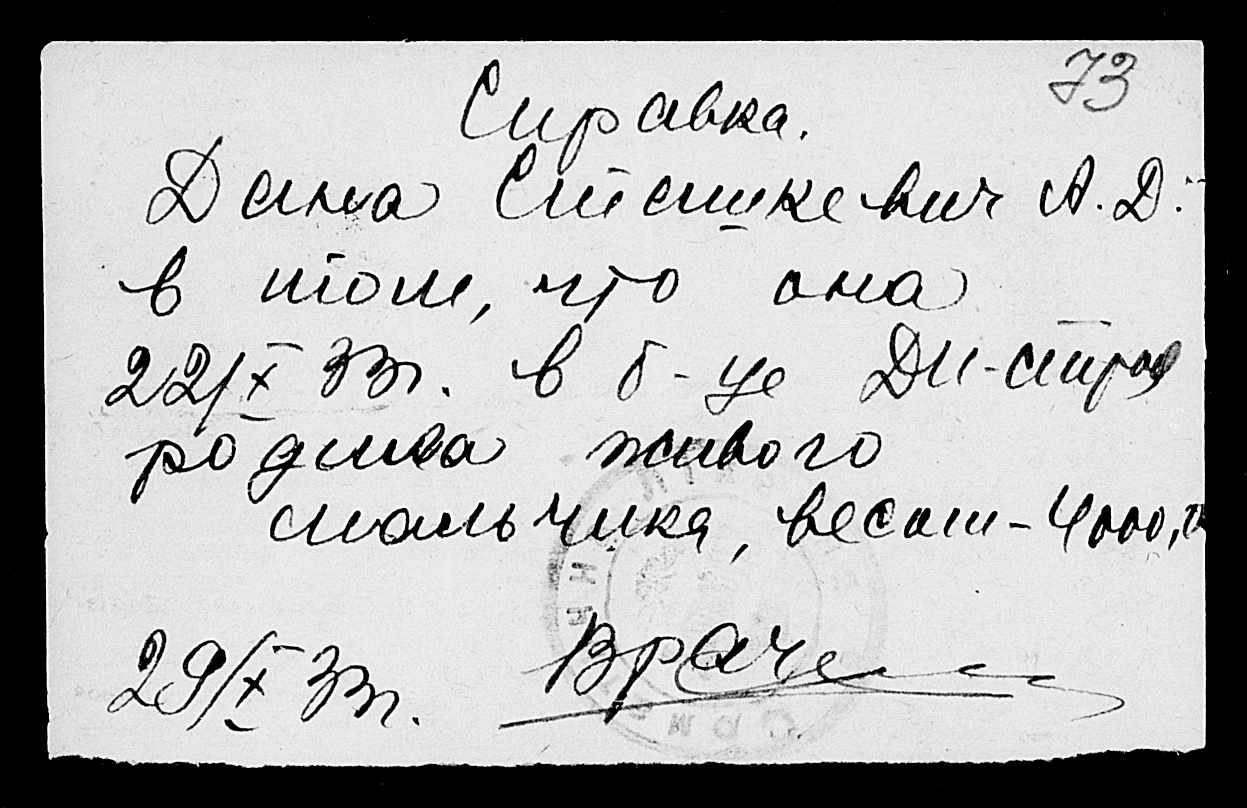 73
Справка.
Дана Сташкевич А.Д.
в том, что она
22/X 33г. в б-це
родила живого
мальчика, весом - 4000,
29/X 33г. Врач